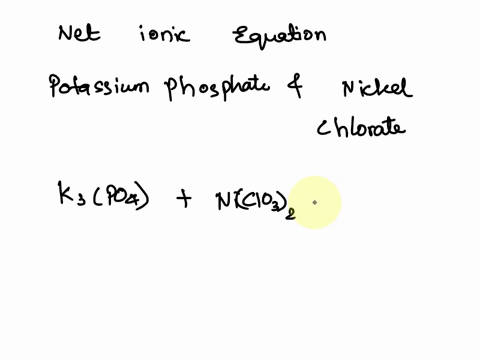 Net ionic Equation
Potassium phosphate & Nickel
Chlorate
K₃(PO₄) + Ni(ClO₃)₂